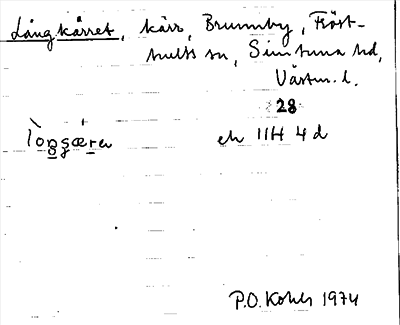 Långkärret, kärr, Brunnby, Fröst-
hults sn, Simtuna hd,
Västm. l.
28
ek 11H 4d
P.O. Kohls 1974